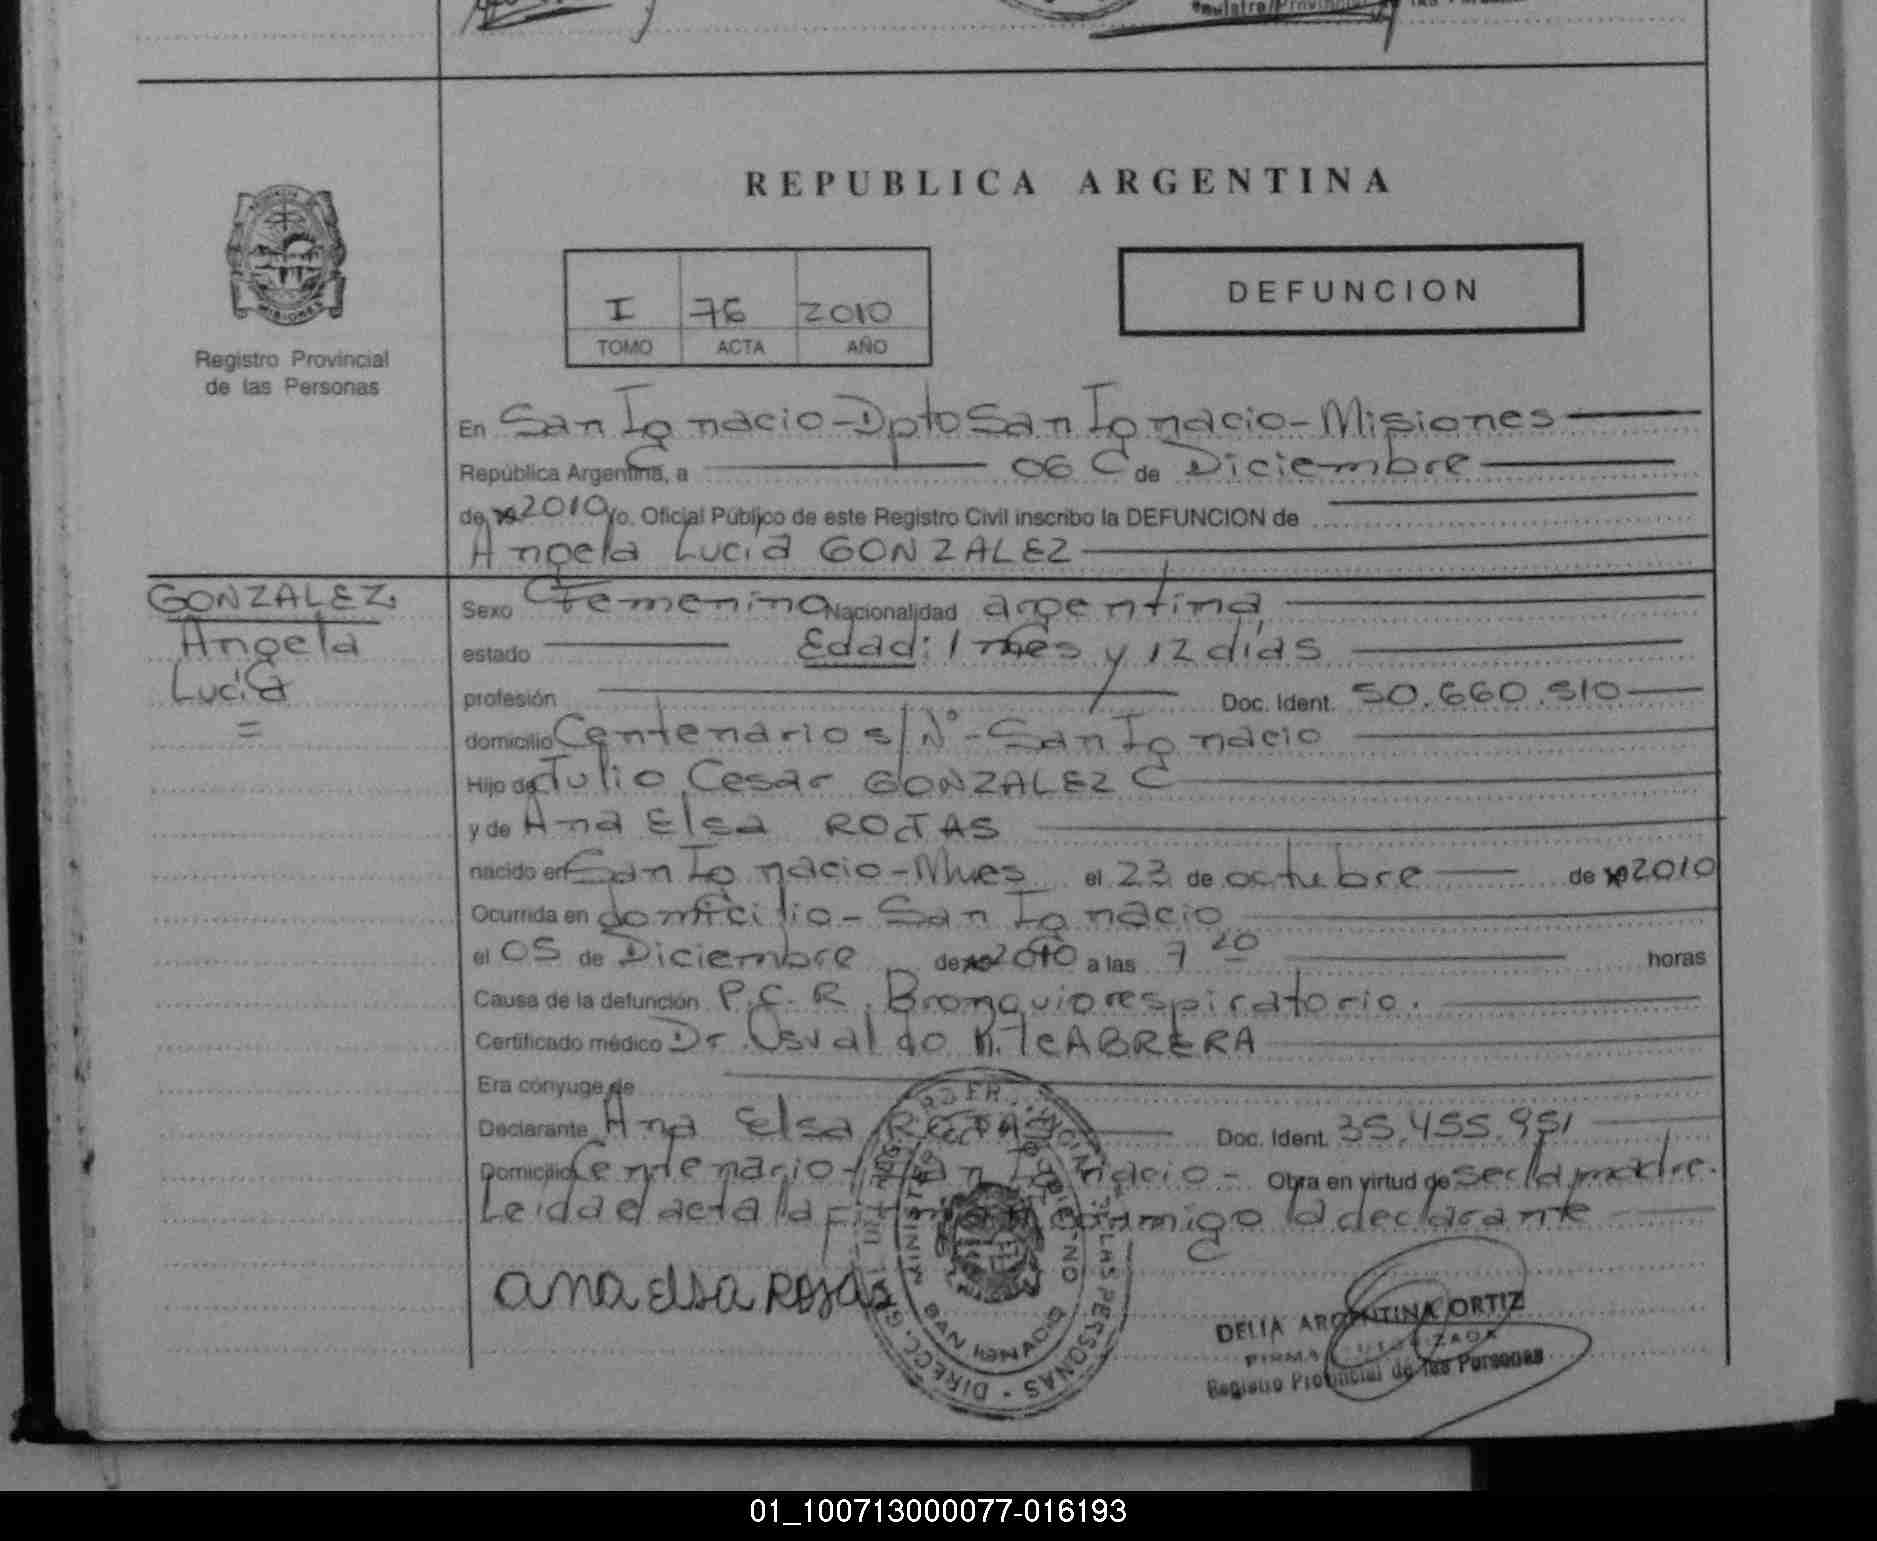 REPUBLICA ARGENTINA
MISIONES
Registro Provincial
de las Personas
I 76 2010
TOMO ACTA AÑO
DEFUNCION
En San Ignacio-Dpto San Ignacio-Misiones
República Argentina, a 06 de Diciembre
de 19 2010 yo. Oficial Público de este Registro Civil inscribo la DEFUNCION de
Angela Lucia GONZALEZ
GONZALEZ
Angela
Lucia
=
Sexo Femenino Nacionalidad argentina,
estado Edad: 1 mes y 12 días
profesión Doc. Ident. 50.660.510
domicilio Centenario s/Nº - San Ignacio
Hijo de Julio Cesar GONZALEZ
y de Ana Elsa ROJAS
nacido en San Ignacio-Mnes el 23 de octubre de 19 2010
Ocurrida en domicilio - San Ignacio
el 05 de Diciembre de 19 2010 a las 7 20 horas
Causa de la defunción P.C.R. Bronquiorespiratorio.
Certificado médico Dr. Osvaldo CABRERA
Era cónyuge de
Declarante Ana Elsa ROJAS Doc. Ident. 35.455.951
Domicilio Centenario - San Ignacio - Obra en virtud de ser la madre.
Leida el acta la firma conmigo la declarante
ana elsa Rojas
SAN IGNACIO
DELIA ARGENTINA ORTIZ
FIRMA AUTORIZADA
Registro Provincial de las Personas
01_100713000077-016193